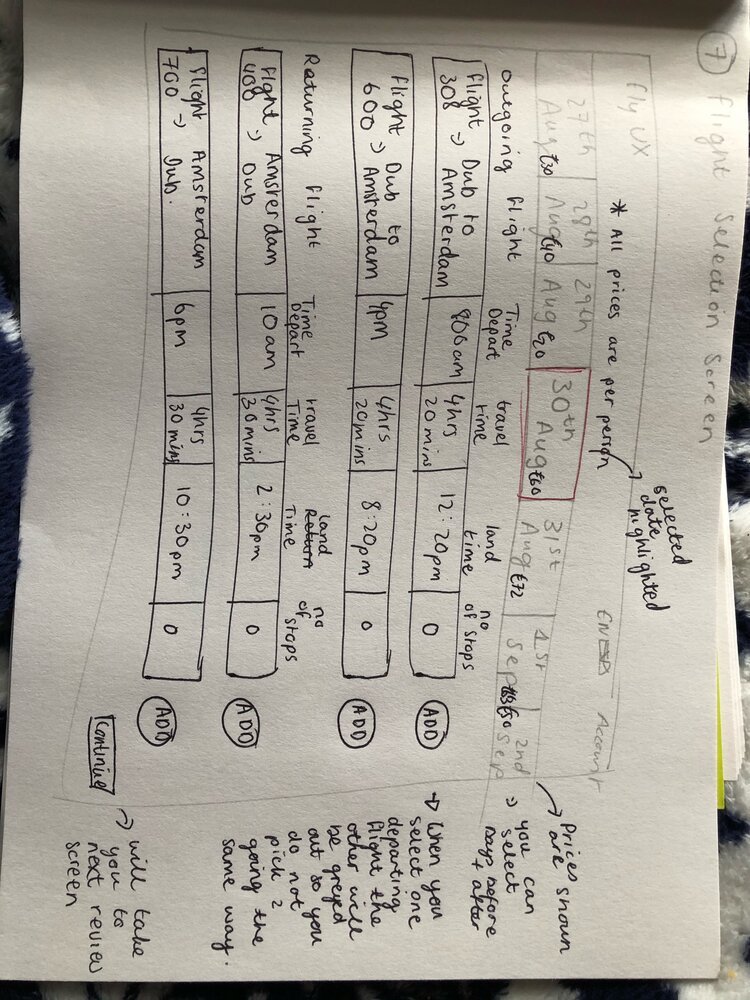 7 flight Selection Screen
Fly UX
Account
* All prices are per person
selected
date
highlighted
27th
Aug £30
28th
Aug £40
29th
Aug £20
30th
Aug £60
31st
Aug £72
1st
Sep
2nd
Sep
Prices shown
are
=> you can
select
days before
+ after
outgoing flight
Time
Depart
travel
time
land
time
no
of stops
flight Dub to
308 => Amsterdam
800am
4hrs
20 mins
12:20pm
0
ADD
flight Dub to
600 => Amsterdam
4pm
4hrs
20mins
8:20pm
0
ADD
When you
select one
departing
flight the
other will
be greyed
out so you
do not
pick 2
going the
same way.
Returning flight
Time
Depart
travel
Time
land
Return
Time
no
of stops
flight Amsterdam
408 => Dub
10am
4hrs
30mins
2:30pm
0
ADD
flight Amsterdam
700 => Dub.
6pm
4hrs
30 mins
10:30pm
0
ADD
Continue
will take
you to
next review
screen